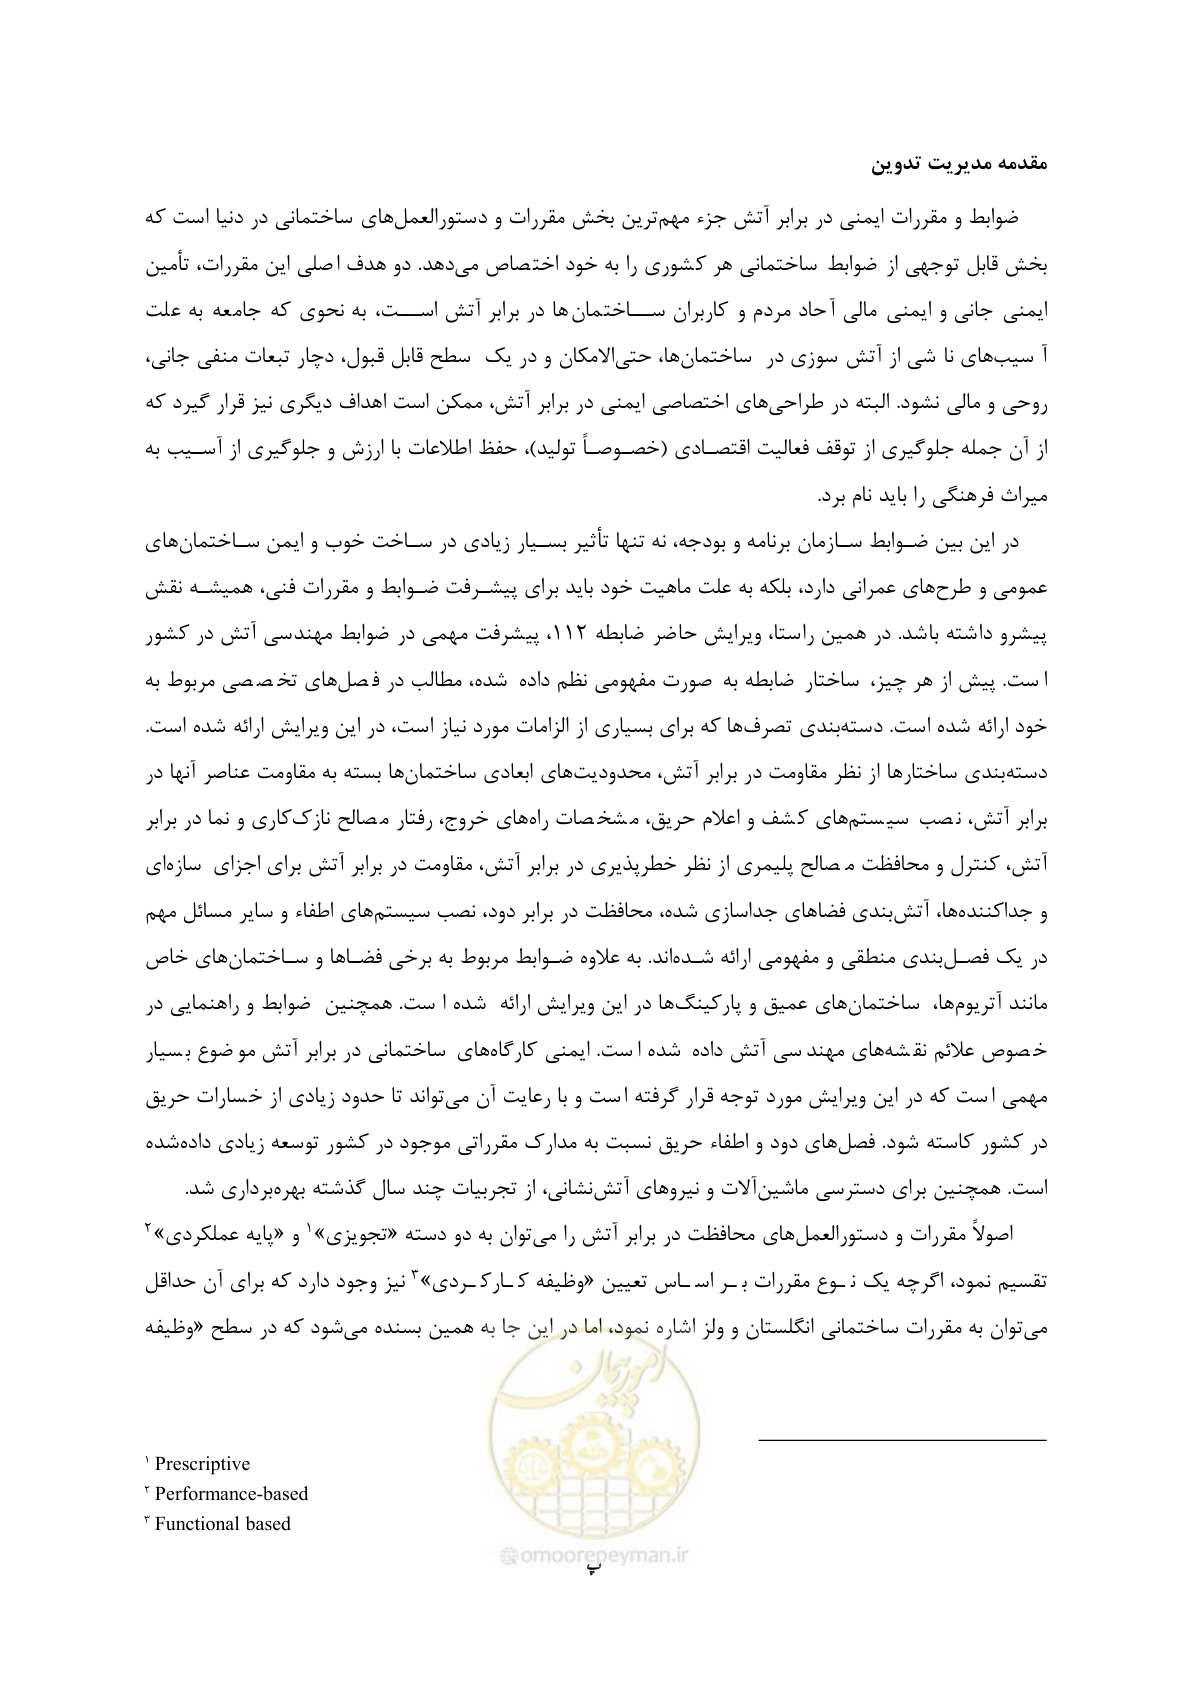 مقدمه مدیریت تدوین
ضوابط و مقررات ایمنی در برابر آتش جزء مهم‌ترین بخش مقررات و دستورالعمل‌های ساختمانی در دنیا است که
بخش قابل توجهی از ضوابط ساختمانی هر کشوری را به خود اختصاص می‌دهد. دو هدف اصلی این مقررات، تأمین
ایمنی جانی و ایمنی مالی آحاد مردم و کاربران ساختمان‌ها در برابر آتش است، به نحوی که جامعه به علت
آسیب‌های ناشی از آتش سوزی در ساختمان‌ها، حتی‌الامکان و در یک سطح قابل قبول، دچار تبعات منفی جانی،
روحی و مالی نشود. البته در طراحی‌های اختصاصی ایمنی در برابر آتش، ممکن است اهداف دیگری نیز قرار گیرد که
از آن جمله جلوگیری از توقف فعالیت اقتصادی (خصوصاً تولید)، حفظ اطلاعات با ارزش و جلوگیری از آسیب به
میراث فرهنگی را باید نام برد.
در این بین ضوابط سازمان برنامه و بودجه، نه تنها تأثیر بسیار زیادی در ساخت خوب و ایمن ساختمان‌های
عمومی و طرح‌های عمرانی دارد، بلکه به علت ماهیت خود باید برای پیشرفت ضوابط و مقررات فنی، همیشه نقش
پیشرو داشته باشد. در همین راستا، ویرایش حاضر ضابطه ۱۱۲، پیشرفت مهمی در ضوابط مهندسی آتش در کشور
است. پیش از هر چیز، ساختار ضابطه به صورت مفهومی نظم داده شده، مطالب در فصل‌های تخصصی مربوط به
خود ارائه شده است. دسته‌بندی تصرف‌ها که برای بسیاری از الزامات مورد نیاز است، در این ویرایش ارائه شده است.
دسته‌بندی ساختارها از نظر مقاومت در برابر آتش، محدودیت‌های ابعادی ساختمان‌ها بسته به مقاومت عناصر آنها در
برابر آتش، نصب سیستم‌های کشف و اعلام حریق، مشخصات راه‌های خروج، رفتار مصالح نازک‌کاری و نما در برابر
آتش، کنترل و محافظت مصالح پلیمری از نظر خطرپذیری در برابر آتش، مقاومت در برابر آتش برای اجزای سازه‌ای
و جداکننده‌ها، آتش‌بندی فضاهای جداسازی شده، محافظت در برابر دود، نصب سیستم‌های اطفاء و سایر مسائل مهم
در یک فصل‌بندی منطقی و مفهومی ارائه شده‌اند. به علاوه ضوابط مربوط به برخی فضاها و ساختمان‌های خاص
مانند آتریوم‌ها، ساختمان‌های عمیق و پارکینگ‌ها در این ویرایش ارائه شده است. همچنین ضوابط و راهنمایی در
خصوص علائم نقشه‌های مهندسی آتش داده شده است. ایمنی کارگاه‌های ساختمانی در برابر آتش موضوع بسیار
مهمی است که در این ویرایش مورد توجه قرار گرفته است و با رعایت آن می‌تواند تا حدود زیادی از خسارات حریق
در کشور کاسته شود. فصل‌های دود و اطفاء حریق نسبت به مدارک مقرراتی موجود در کشور توسعه زیادی داده‌شده
است. همچنین برای دسترسی ماشین‌آلات و نیروهای آتش‌نشانی، از تجربیات چند سال گذشته بهره‌برداری شد.
اصولاً مقررات و دستورالعمل‌های محافظت در برابر آتش را می‌توان به دو دسته «تجویزی»۱ و «پایه عملکردی»۲
تقسیم نمود، اگرچه یک نوع مقررات بر اساس تعیین «وظیفه کارکردی»۳ نیز وجود دارد که برای آن حداقل
می‌توان به مقررات ساختمانی انگلستان و ولز اشاره نمود، اما در این جا به همین بسنده می‌شود که در سطح «وظیفه
۱ Prescriptive
۲ Performance-based
۳ Functional based
امور پیمان
@omoorepeyman.ir
پ